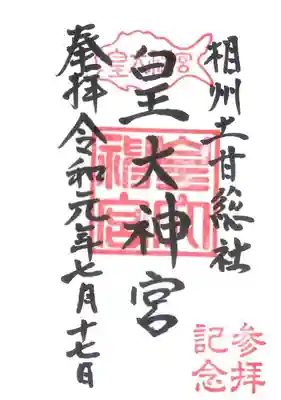 相州土甘総社
皇大神宮
皇大神宮
皇大神宮
奉拝 令和元年七月十七日
参拝
記念